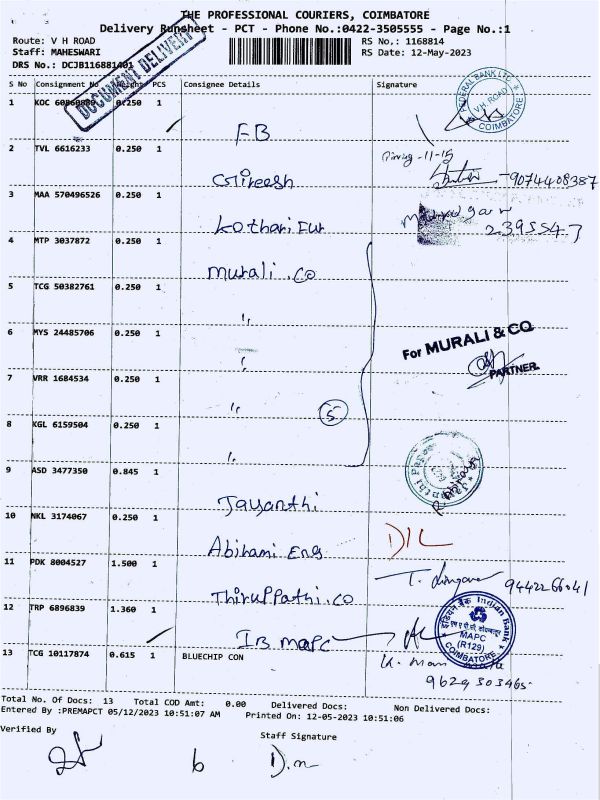 THE PROFESSIONAL COURIERS, COIMBATORE
Delivery Runsheet - PCT - Phone No.:0422-3505555 - Page No.:1
Route: V H ROAD
RS No.: 1168814
Staff: MAHESWARI
RS Date: 12-May-2023
DRS No.: DCJB116881401
DOCUMENT DELIVERY
S No Consignment No Weight PCS Consignee Details Signature
1 KOC 0.250 1 FB
FEDERAL BANK LTD. V.H. ROAD COIMBATORE
2 TVL 6616233 0.250 1 Gireesh
-11-15
9074408387
3 MAA 570496526 0.250 1 Kothari Fur
2395547
4 MTP 3037872 0.250 1 Murali .Co
5 TCG 50382761 0.250 1 "
6 MYS 24485706 0.250 1 "
For MURALI & CO
PARTNER.
7 VRR 1684534 0.250 1 "
5
8 KGL 6159504 0.250 1 "
9 ASD 3477350 0.845 1 Jayanthi
10 NKL 3174067 0.250 1 Abihami Eng
DIL
11 PDK 8004527 1.500 1 Thiruppathi .co
T. 9442266041
12 TRP 6896839 1.360 1 IB MAPC
इंडियन बैंक Indian Bank
MAPC
(R129)
COIMBATORE
13 TCG 10117874 0.615 1 BLUECHIP CON
K. Man
9629303465
Total No. Of Docs: 13 Total COD Amt: 0.00 Delivered Docs: Non Delivered Docs:
Entered By :PREMAPCT 05/12/2023 10:51:07 AM Printed On: 12-05-2023 10:51:06
Verified By
Staff Signature
6
D.m